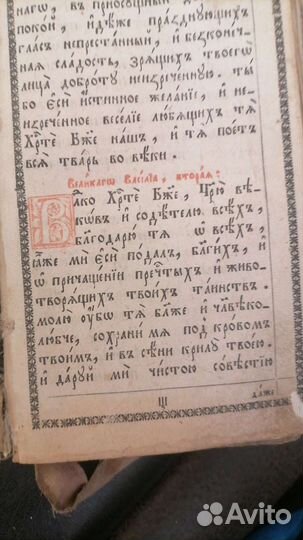 нагѡ, въ присносꙋщный
покой, и҆дѣже пра́зднꙋющихъ
гла́съ непреста́нный, и҆ безконе́ч
ная сла́дость, зрѧ́щихъ твоегѡ̀
лица̀ добро́тꙋ неизрече́ннꙋю. ты̀
бо є҆сѝ и҆́стинное жела́нїе, и҆ не
и҆зрече́нное весе́лїе лю́бѧщихъ тѧ̀
Хрⷭ҇тѐ Бж҃е на́шъ, и҆ тѧ̀ пое́тъ
всѧ̀ тва́рь во вѣ́ки.
Вели́кагѡ Васи́лїа, втора́ѧ:
Влⷣко Хрⷭ҇тѐ Бж҃е, Цр҃ю̀ вѣ
кѡ́въ и҆ содѣ́телю всѣ́хъ,
благодарю̀ тѧ̀ ѡ҆ всѣ́хъ,
ꙗ҆̀же мѝ є҆сѝ пода́лъ, благи́хъ, и҆
ѡ҆ причаще́нїи пречⷭ҇тыхъ и҆ живо
творѧ́щихъ твои́хъ та́инствъ.
молю̀ ᲂу҆̀бѡ тѧ̀ бл҃же и҆ чл҃вѣко
лю́бче, сохранѝ мѧ под̾ кро́вомъ
твои́мъ, и҆ въ сѣ́ни крилꙋ̀ твое́ю.
и҆ да́рꙋй мѝ чи́стою со́вѣстїю
да́же
Avito